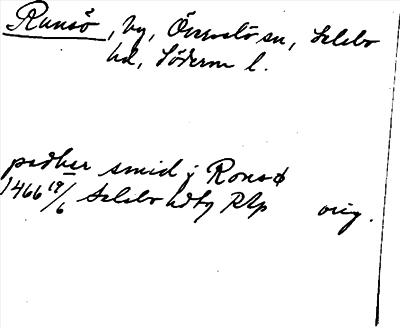 Runsö, by, Överselö sn, Selebo
hd, Söderm l.
pædher smid j Ronsø
1466 19/6 Selebo hdtg RAp orig.